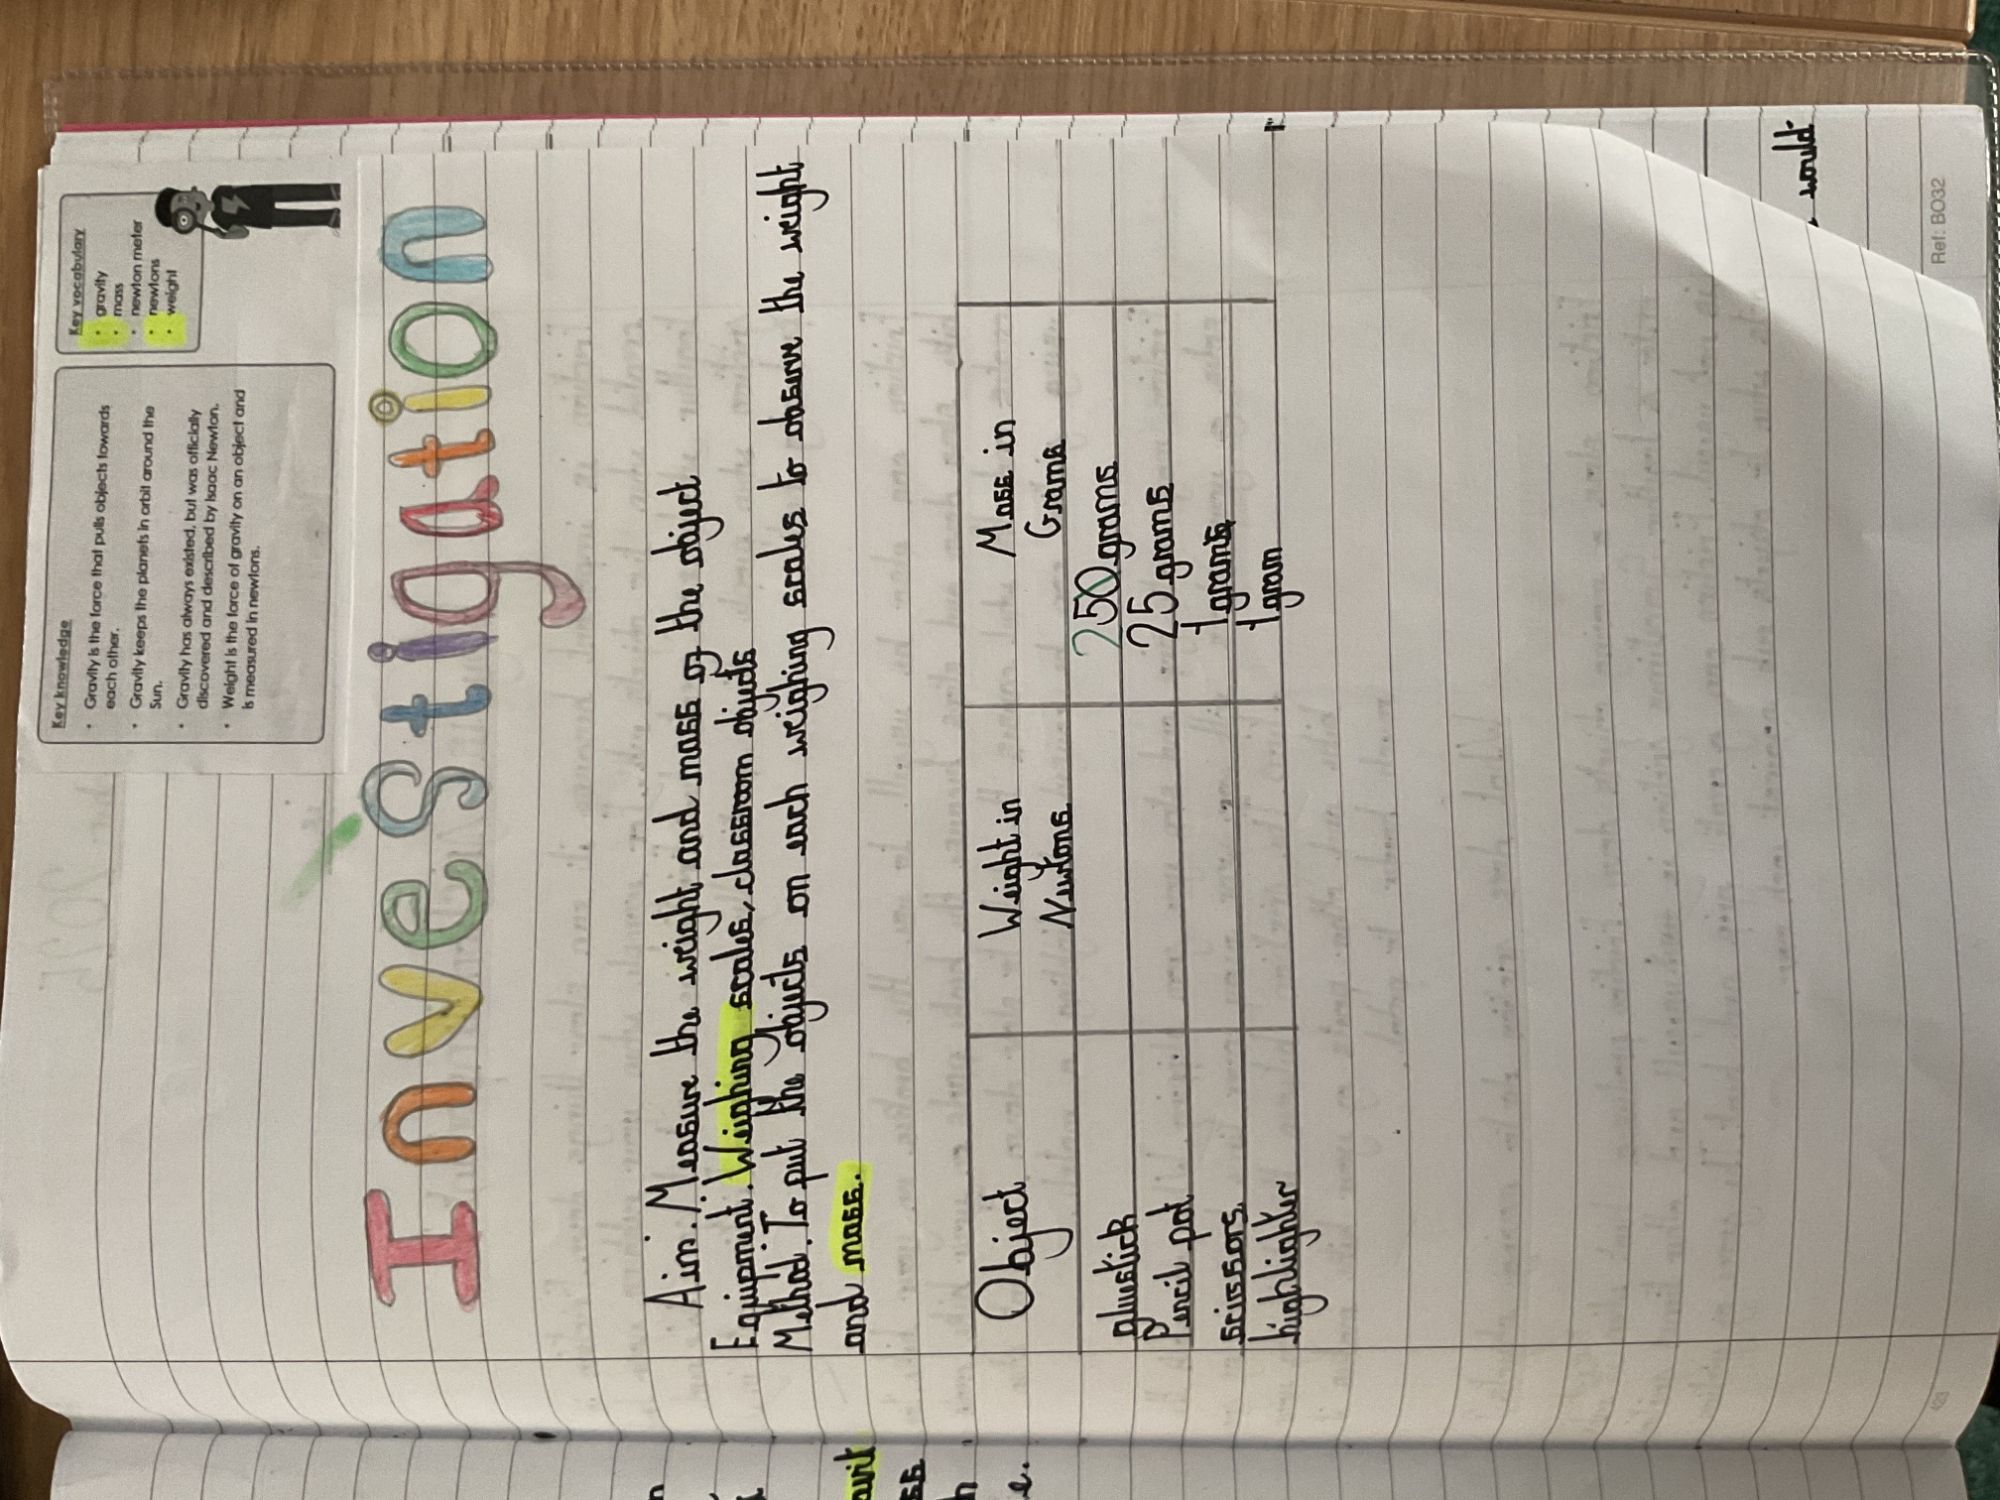 Key knowledge
• Gravity is the force that pulls objects towards
each other.
• Gravity keeps the planets in orbit around the
Sun.
• Gravity has always existed, but was officially
discovered and described by Isaac Newton.
• Weight is the force of gravity on an object and
is measured in newtons.
Key vocabulary
• gravity
• mass
• newton meter
• newtons
• weight
Investigation
Aim: Measure the weight and mass of the object
Equipment: Weighing scales, classroom objects
Method: To put the objects on each weighing scales to observe the weight
and mass.
Object Weight in Newtons Mass in Grams
gluestick 250 grams
Pencil pot 25 grams
scissors 1 grams
highlighter 1 gram
would
Ref: BO32